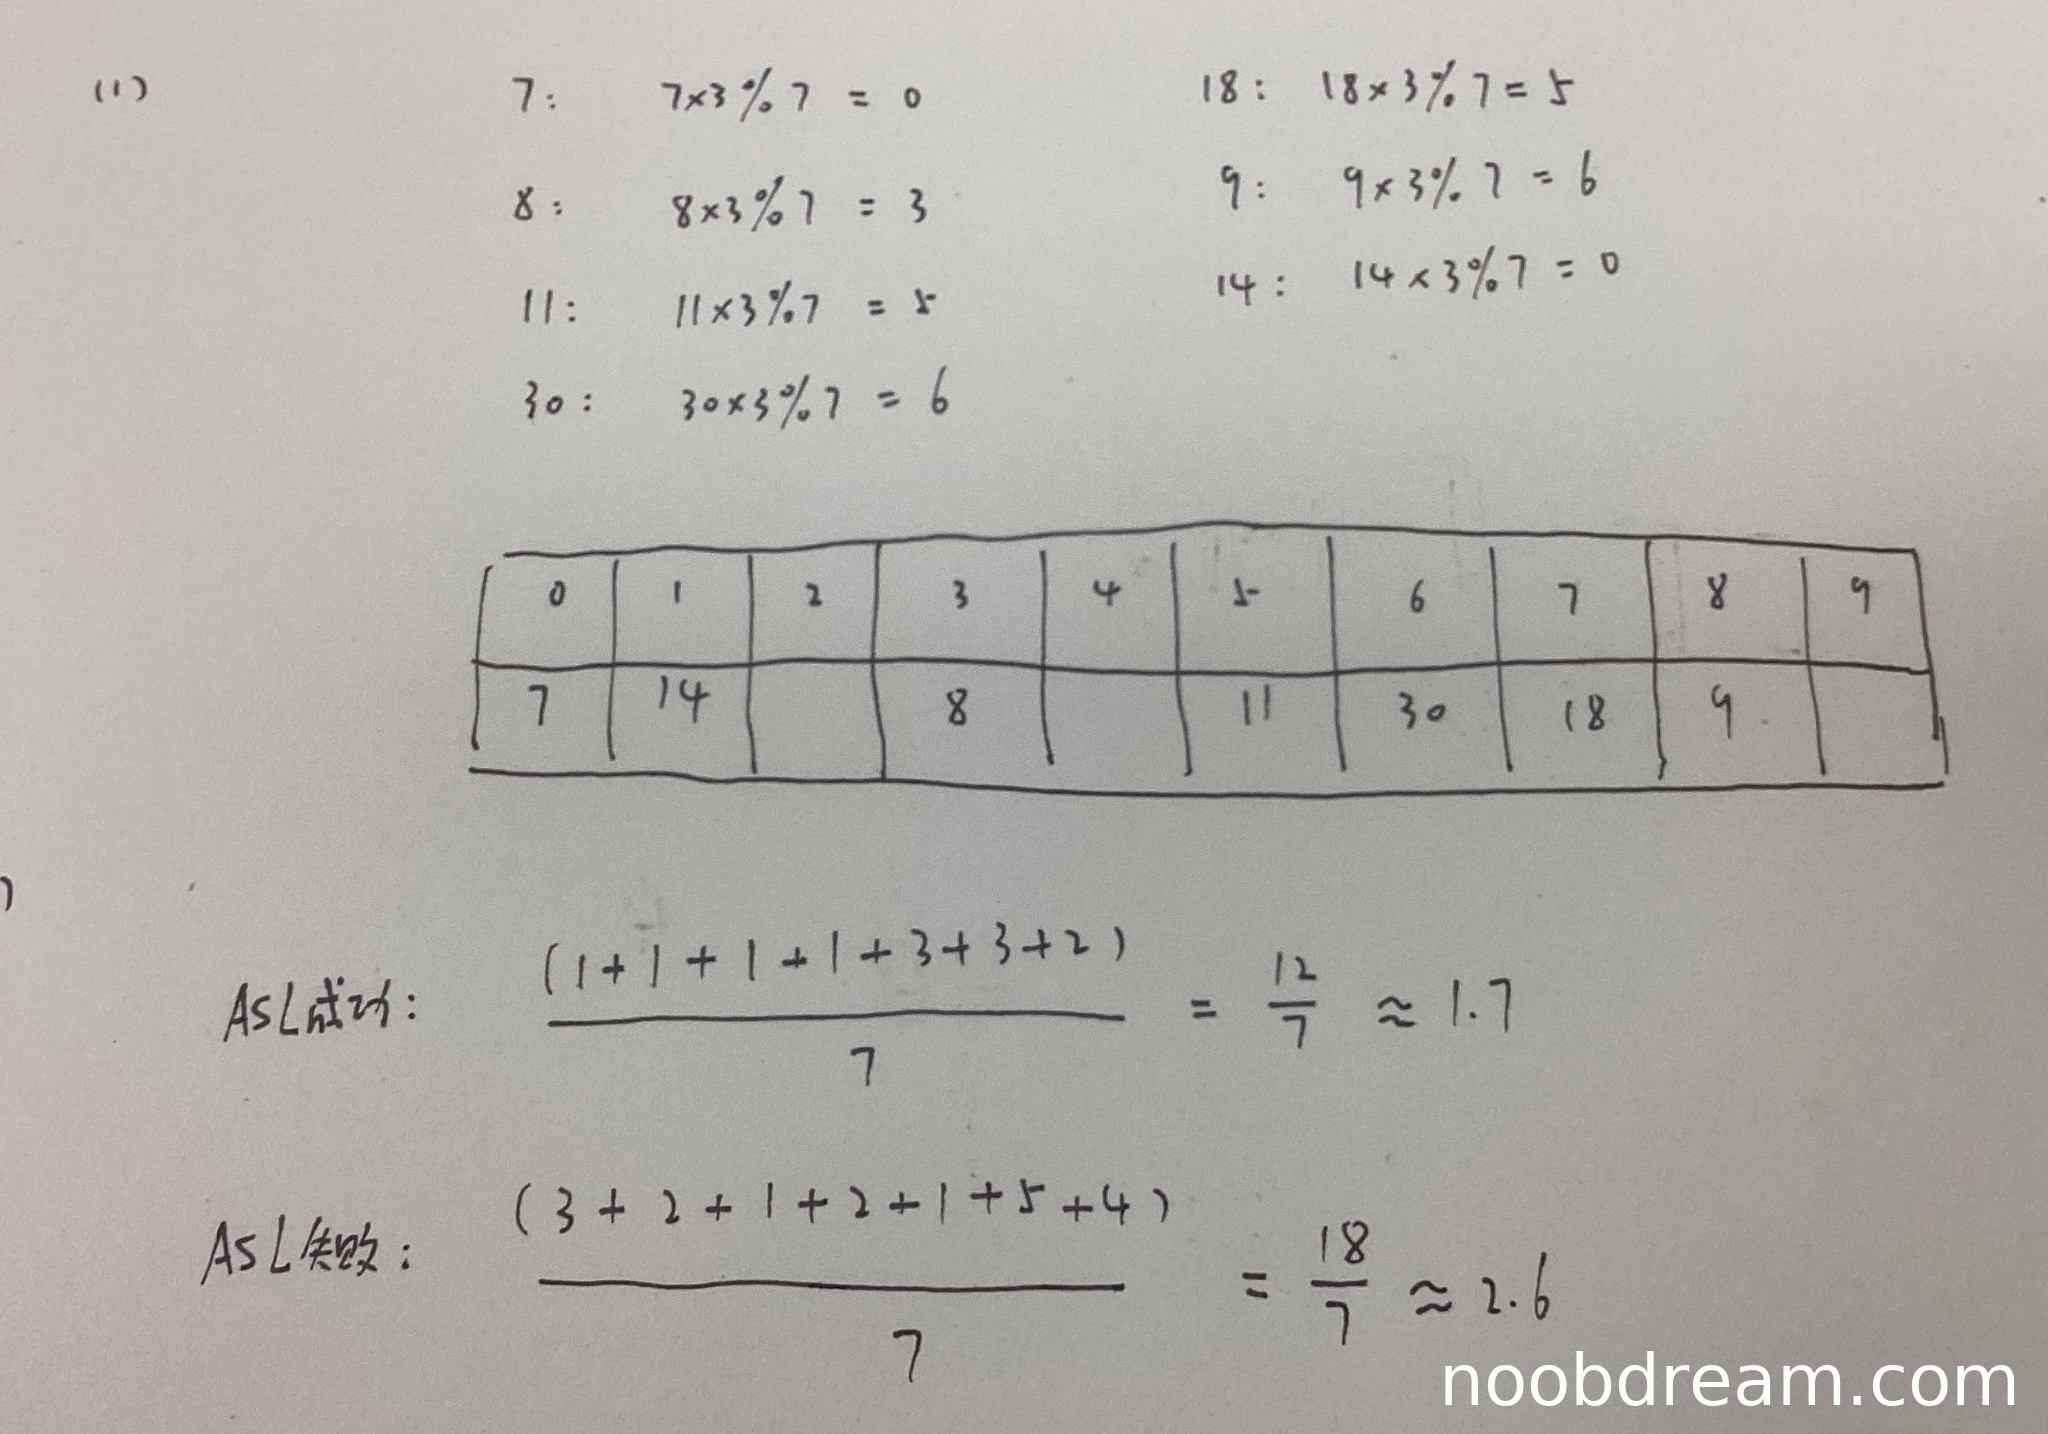 (1)
7: 7×3%7 = 0
8: 8×3%7 = 3
11: 11×3%7 = 5
30: 30×3%7 = 6
18: 18×3%7 = 5
9: 9×3%7 = 6
14: 14×3%7 = 0
0 1 2 3 4 5 6 7 8 9
7 14 8 11 30 18 9
)
ASL成功: (1+1+1+1+3+3+2) / 7 = 12/7 ≈ 1.7
ASL失败: (3+2+1+2+1+5+4) / 7 = 18/7 ≈ 2.6
noobdream.com